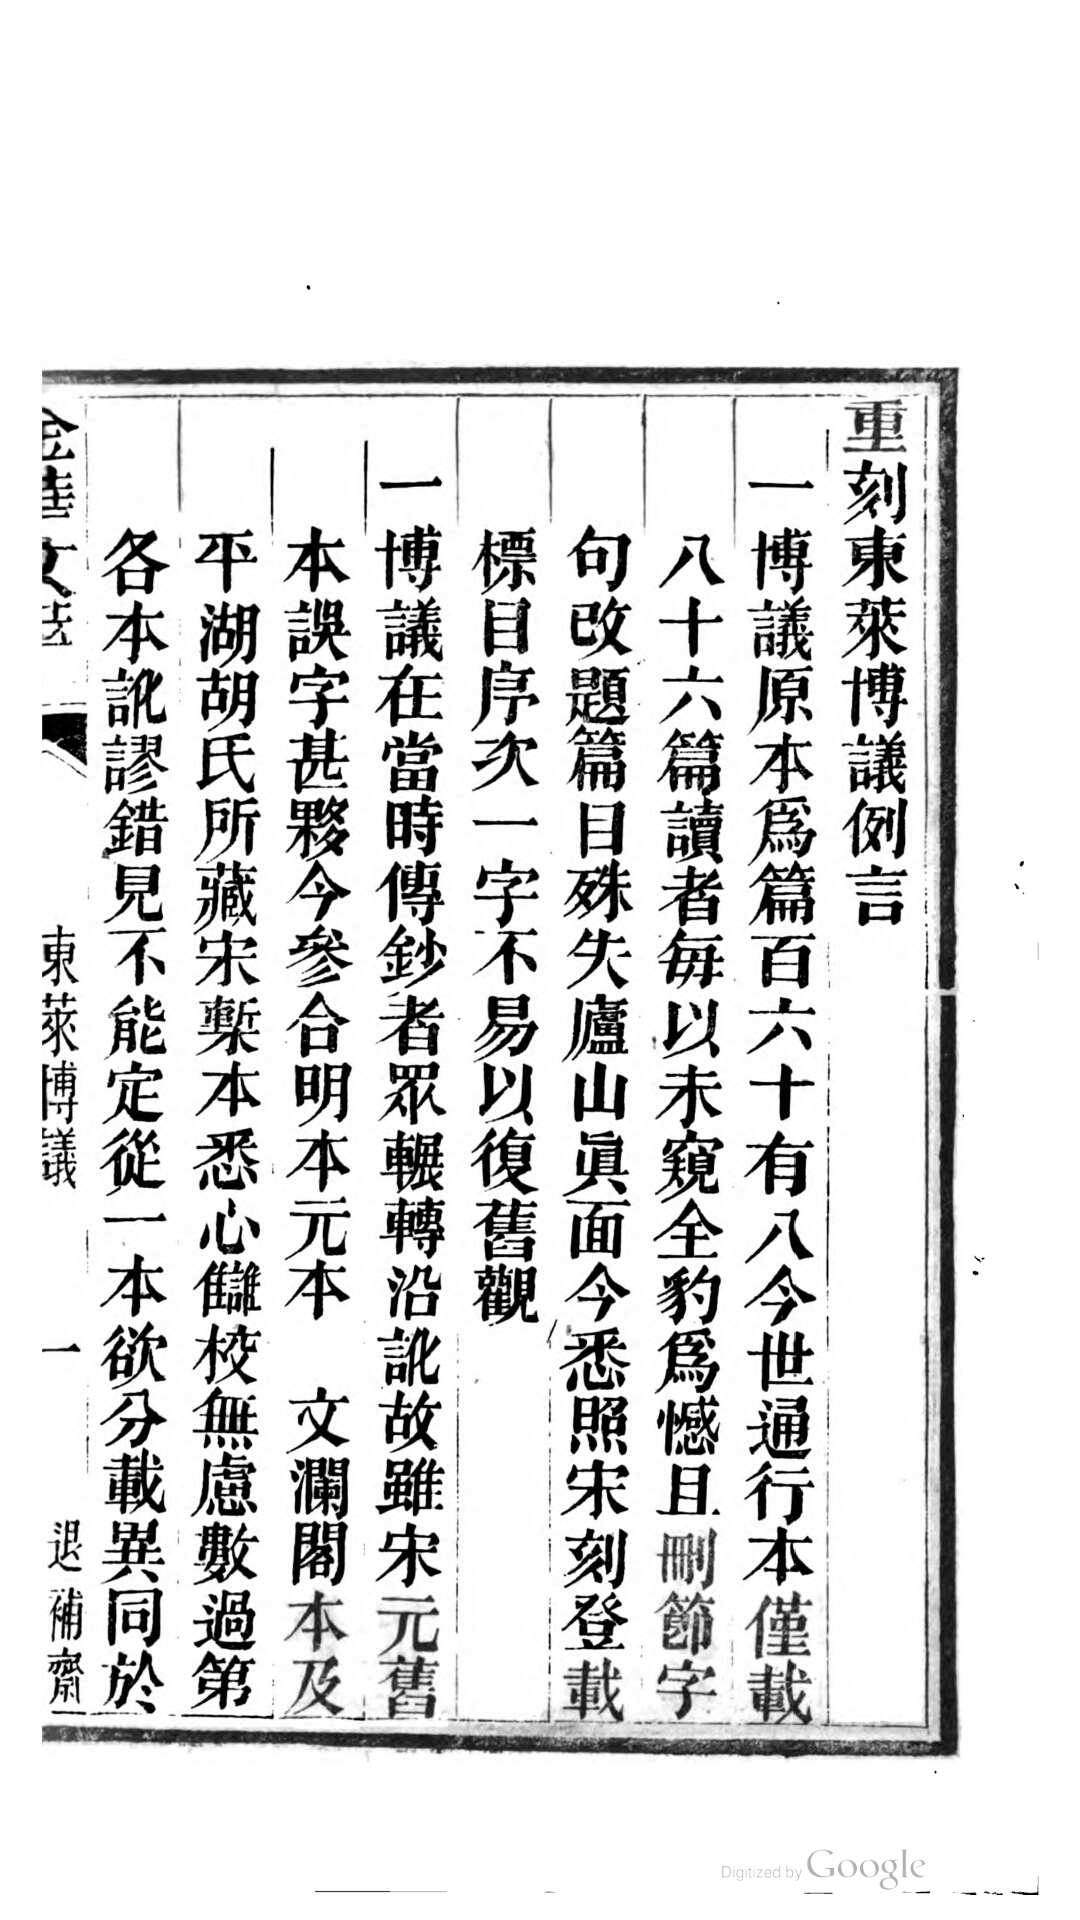 重刻東萊博議例言
一博議原本爲篇百六十有八今世通行本僅載
八十六篇讀者每以未窺全豹爲憾且刪節字
句改題篇目殊失廬山眞面今悉照宋刻登載
標目序次一字不易以復舊觀
一博議在當時傳鈔者眾輾轉沿訛故雖宋元舊
本誤字甚夥今參合明本元本 文瀾閣本及
平湖胡氏所藏宋槧本悉心讎校無慮數過第
各本訛謬錯見不能定從一本欲分載異同於
金華文
東萊博議
一
退補齋
Digitized by Google